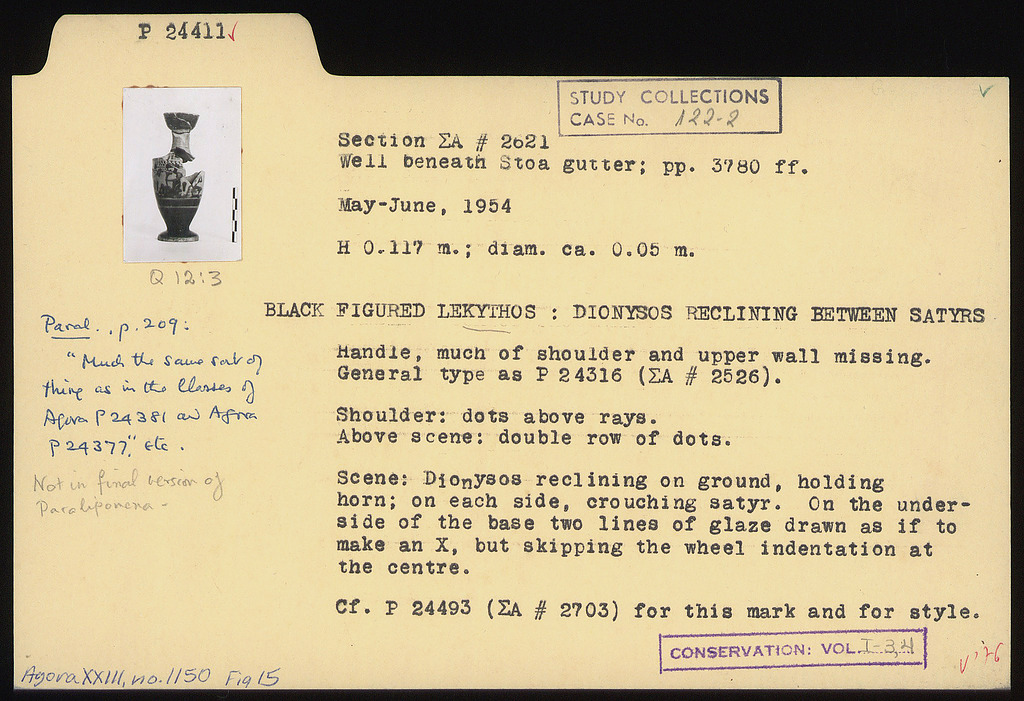 P 24411 ✓
STUDY COLLECTIONS
CASE No. 122-2
Section ΣA # 2621
Well beneath Stoa gutter; pp. 3780 ff.
May-June, 1954
H 0.117 m.; diam. ca. 0.05 m.
Q 12:3
BLACK FIGURED LEKYTHOS : DIONYSOS RECLINING BETWEEN SATYRS
Paral., p. 209:
"Much the same sort of
thing as in the Classes of
Agora P 24381 and Agora
P 24377," etc.
Not in final version of
Paralipomena -
Handle, much of shoulder and upper wall missing.
General type as P 24316 (ΣA # 2526).
Shoulder: dots above rays.
Above scene: double row of dots.
Scene: Dionysos reclining on ground, holding
horn; on each side, crouching satyr. On the under-
side of the base two lines of glaze drawn as if to
make an X, but skipping the wheel indentation at
the centre.
Cf. P 24493 (ΣA # 2703) for this mark and for style.
CONSERVATION: VOL. I-34
✓ '76
Agora XXIII, no. 1150 Fig 15